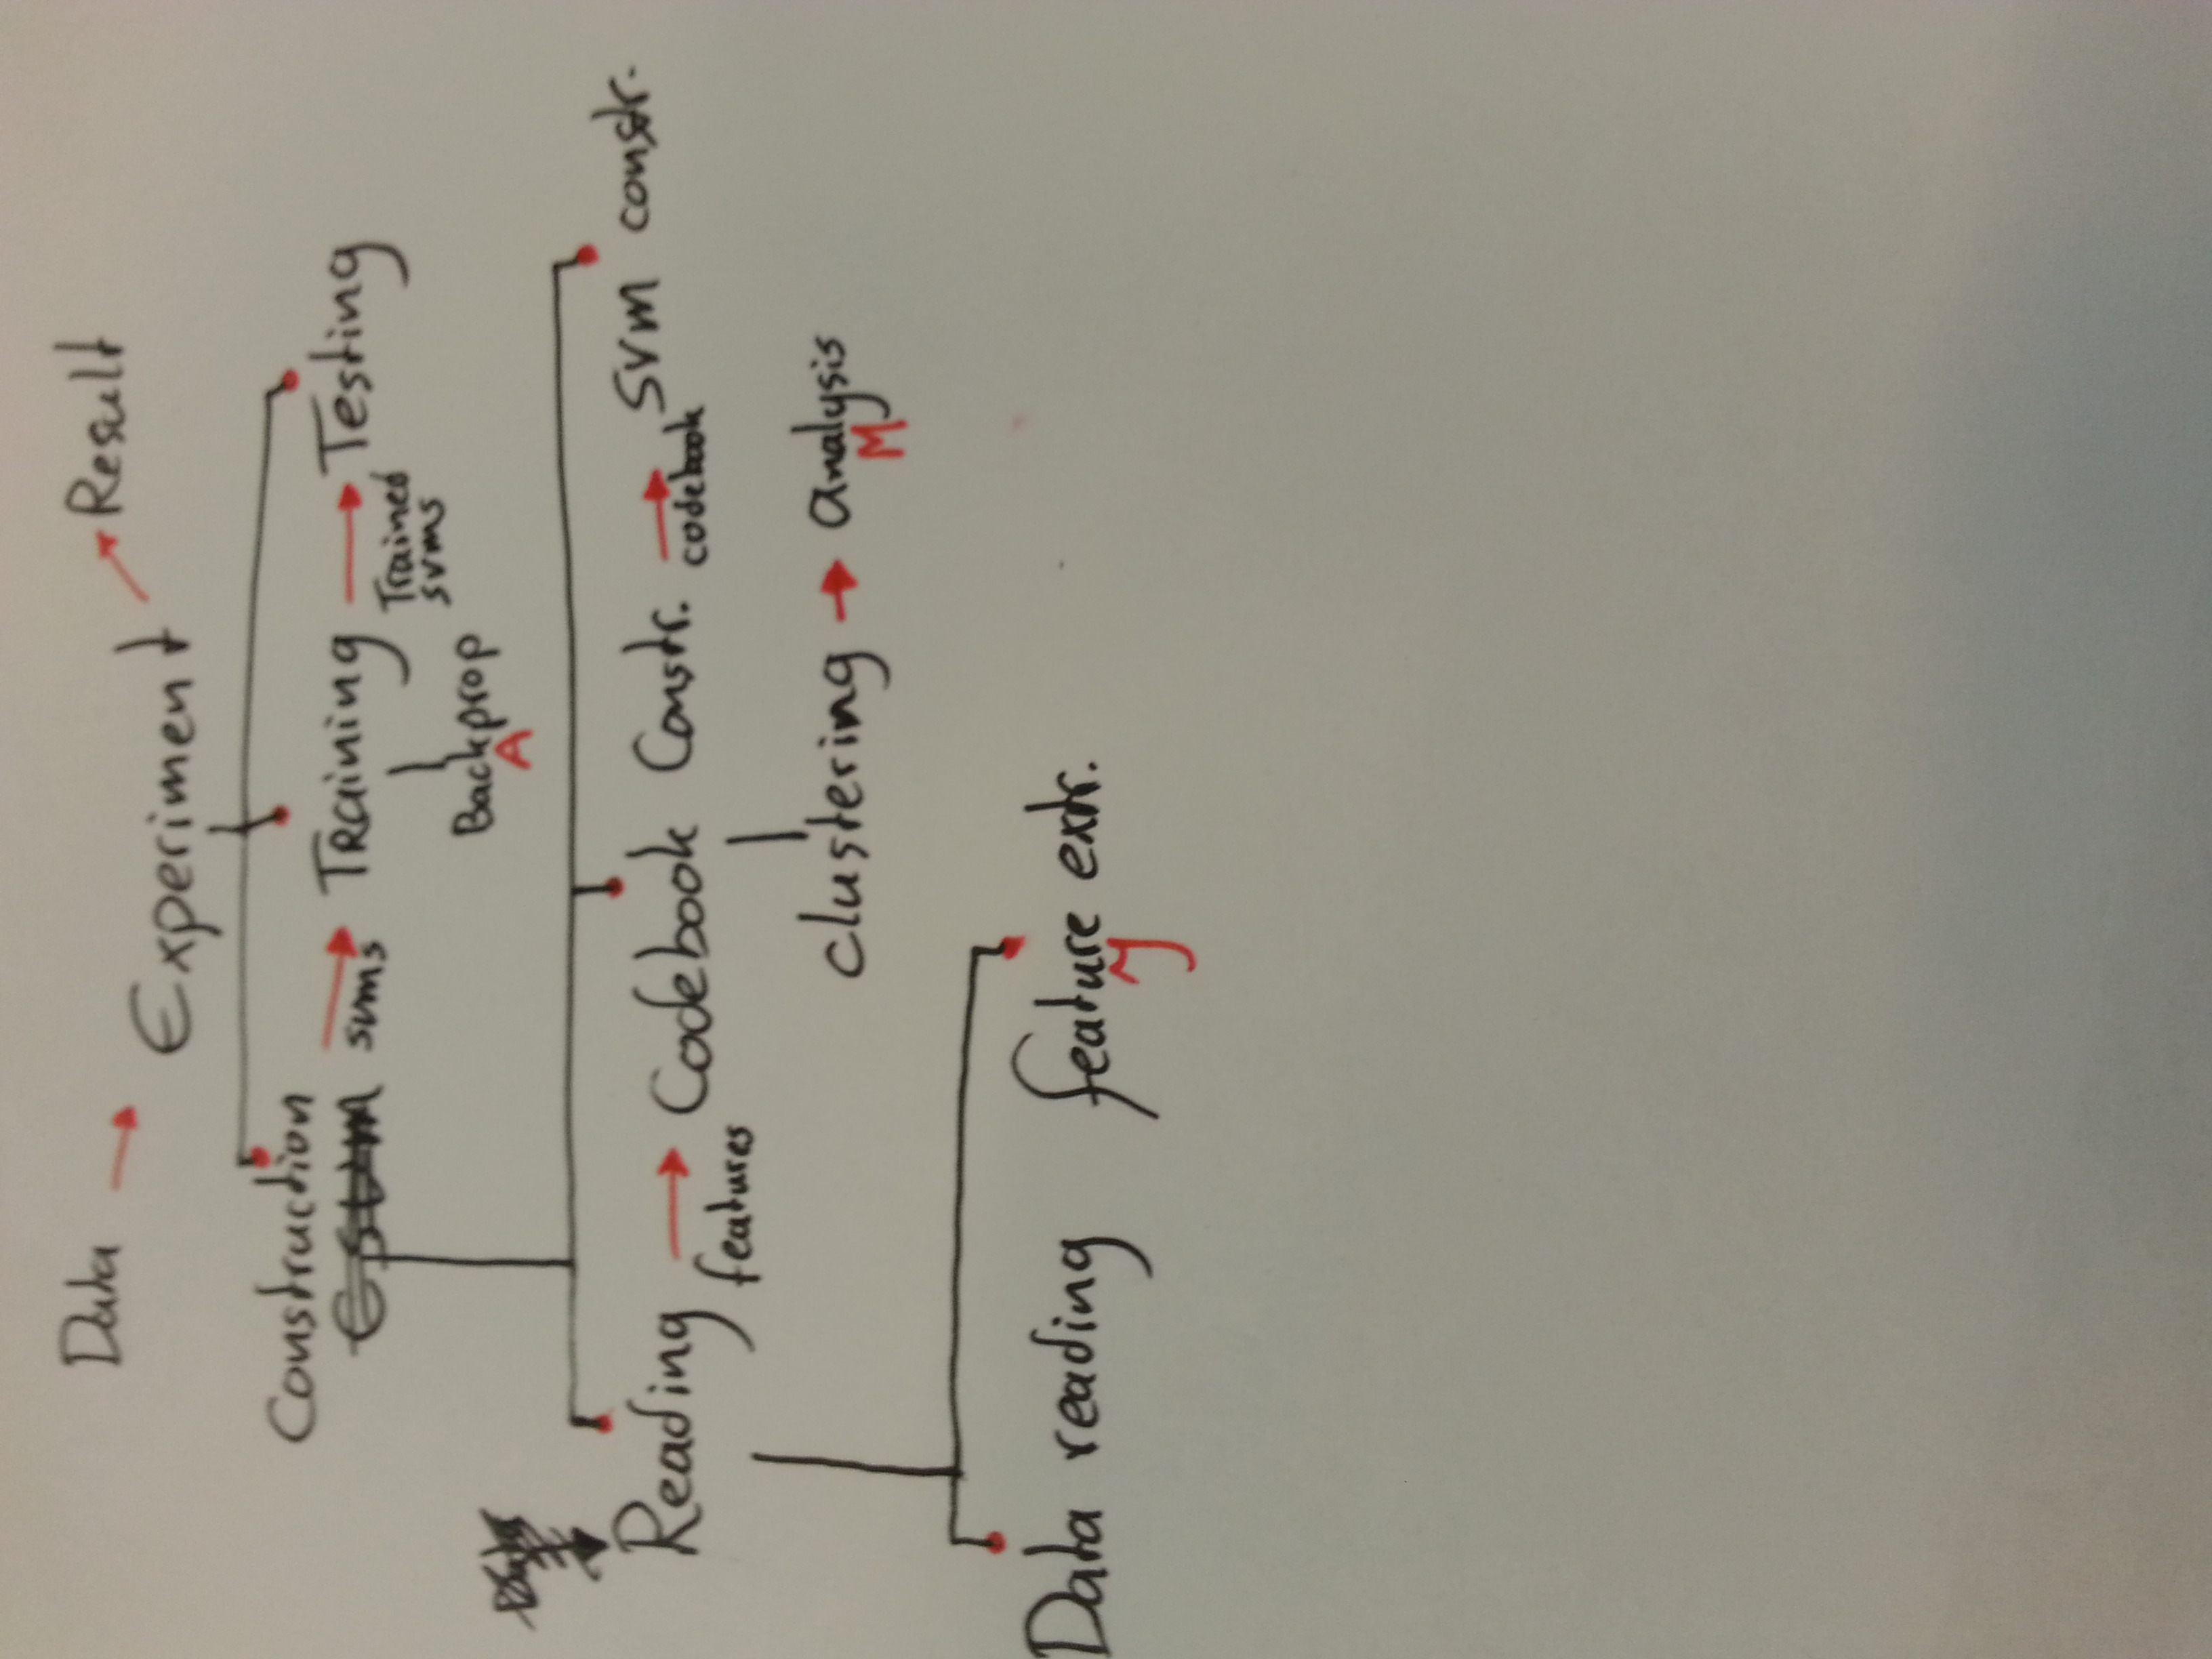 Data
Result
Experiment
Construction
svms
Training
Testing
Trained
svms
Backprop
A
Reading
features
Codebook Constr.
codebook
SVM constr.
clustering
analysis
M
Data reading
feature extr.